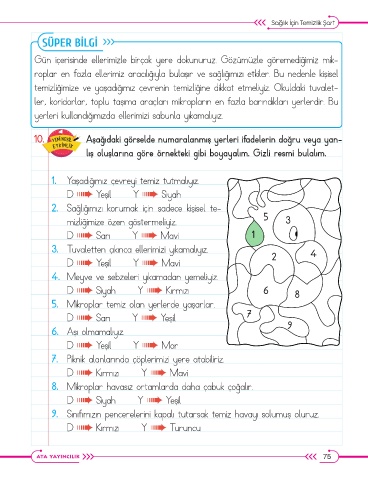 Sağlık İçin Temizlik Şart
SÜPER BİLGİ
Gün içerisinde ellerimizle birçok yere dokunuruz. Gözümüzle göremediğimiz mik-
roplar en fazla ellerimiz aracılığıyla bulaşır ve sağlığımızı etkiler. Bu nedenle kişisel
temizliğimize ve yaşadığımız çevrenin temizliğine dikkat etmeliyiz. Okuldaki tuvalet-
ler, koridorlar, toplu taşıma araçları mikropların en fazla barındıkları yerlerdir. Bu
yerleri kullandığımızda ellerimizi sabunla yıkamalıyız.
10. Aşağıdaki görselde numaralanmış yerleri ifadelerin doğru veya yan-
lış oluşlarına göre örnekteki gibi boyayalım. Gizli resmi bulalım.
1. Yaşadığımız çevreyi temiz tutmalıyız.
D Yeşil Y Siyah
2. Sağlığımızı korumak için sadece kişisel te-
mizliğimize özen göstermeliyiz.
D Sarı Y Mavi
3. Tuvaletten çıkınca ellerimizi yıkamalıyız.
D Yeşil Y Mavi
4. Meyve ve sebzeleri yıkamadan yemeliyiz.
D Siyah Y Kırmızı
5. Mikroplar temiz olan yerlerde yaşarlar.
D Sarı Y Yeşil
6. Aşı olmamalıyız.
D Yeşil Y Mor
7. Piknik alanlarında çöplerimizi yere atabiliriz.
D Kırmızı Y Mavi
8. Mikroplar havasız ortamlarda daha çabuk çoğalır.
D Siyah Y Yeşil
9. Sınıfımızın pencerelerini kapalı tutarsak temiz havayı solumuş oluruz.
D Kırmızı Y Turuncu
5
3
1
2
4
6
8
7
9
ATA YAYINCILIK
75